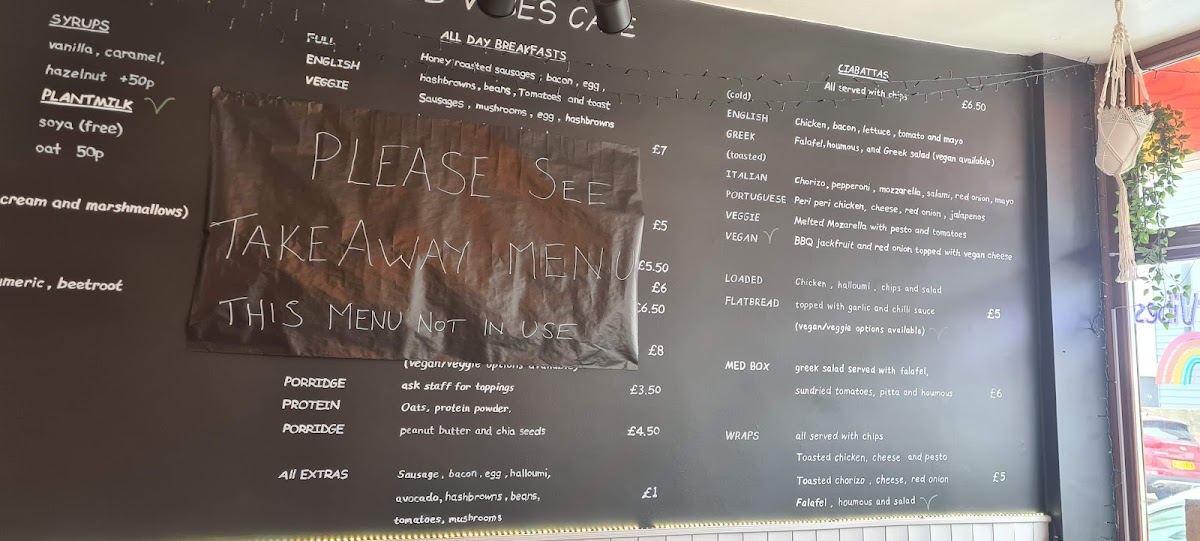 VIBES CAFE
SYRUPS
vanilla, caramel,
hazelnut +50p
PLANTMILK ✓
soya (free)
oat 50p
cream and marshmallows)
beetroot
ALL DAY BREAKFASTS
FULL
ENGLISH
VEGGIE
Honey roasted sausages, bacon, egg,
hashbrowns, beans, Tomatoes and toast
Sausages, mushrooms, egg, hashbrowns
£7
£5
£5.50
£6
£6.50
£8
PLEASE SEE
TAKEAWAY MENU
THIS MENU NOT IN USE
(vegan/veggie options available)
PORRIDGE ask staff for toppings £3.50
PROTEIN Oats, protein powder,
PORRIDGE peanut butter and chia seeds £4.50
All EXTRAS Sausage, bacon, egg, halloumi,
avocado, hashbrowns, beans, £1
tomatoes, mushrooms
CIABATTAS
All served with chips £6.50
(cold)
ENGLISH Chicken, bacon, lettuce, tomato and mayo
GREEK Falafel, houmous, and Greek salad (vegan available)
(toasted)
ITALIAN Chorizo, pepperoni, mozzarella, salami, red onion, mayo
PORTUGUESE Peri peri chicken, cheese, red onion, jalapenos
VEGGIE Melted Mozarella with pesto and tomatoes
VEGAN ✓ BBQ jackfruit and red onion topped with vegan cheese
LOADED Chicken, halloumi, chips and salad
FLATBREAD topped with garlic and chilli sauce £5
(vegan/veggie options available) ✓
MED BOX greek salad served with falafel,
sundried tomatoes, pitta and houmous £6
WRAPS all served with chips
Toasted chicken, cheese and pesto
Toasted chorizo, cheese, red onion £5
Falafel, houmous and salad ✓